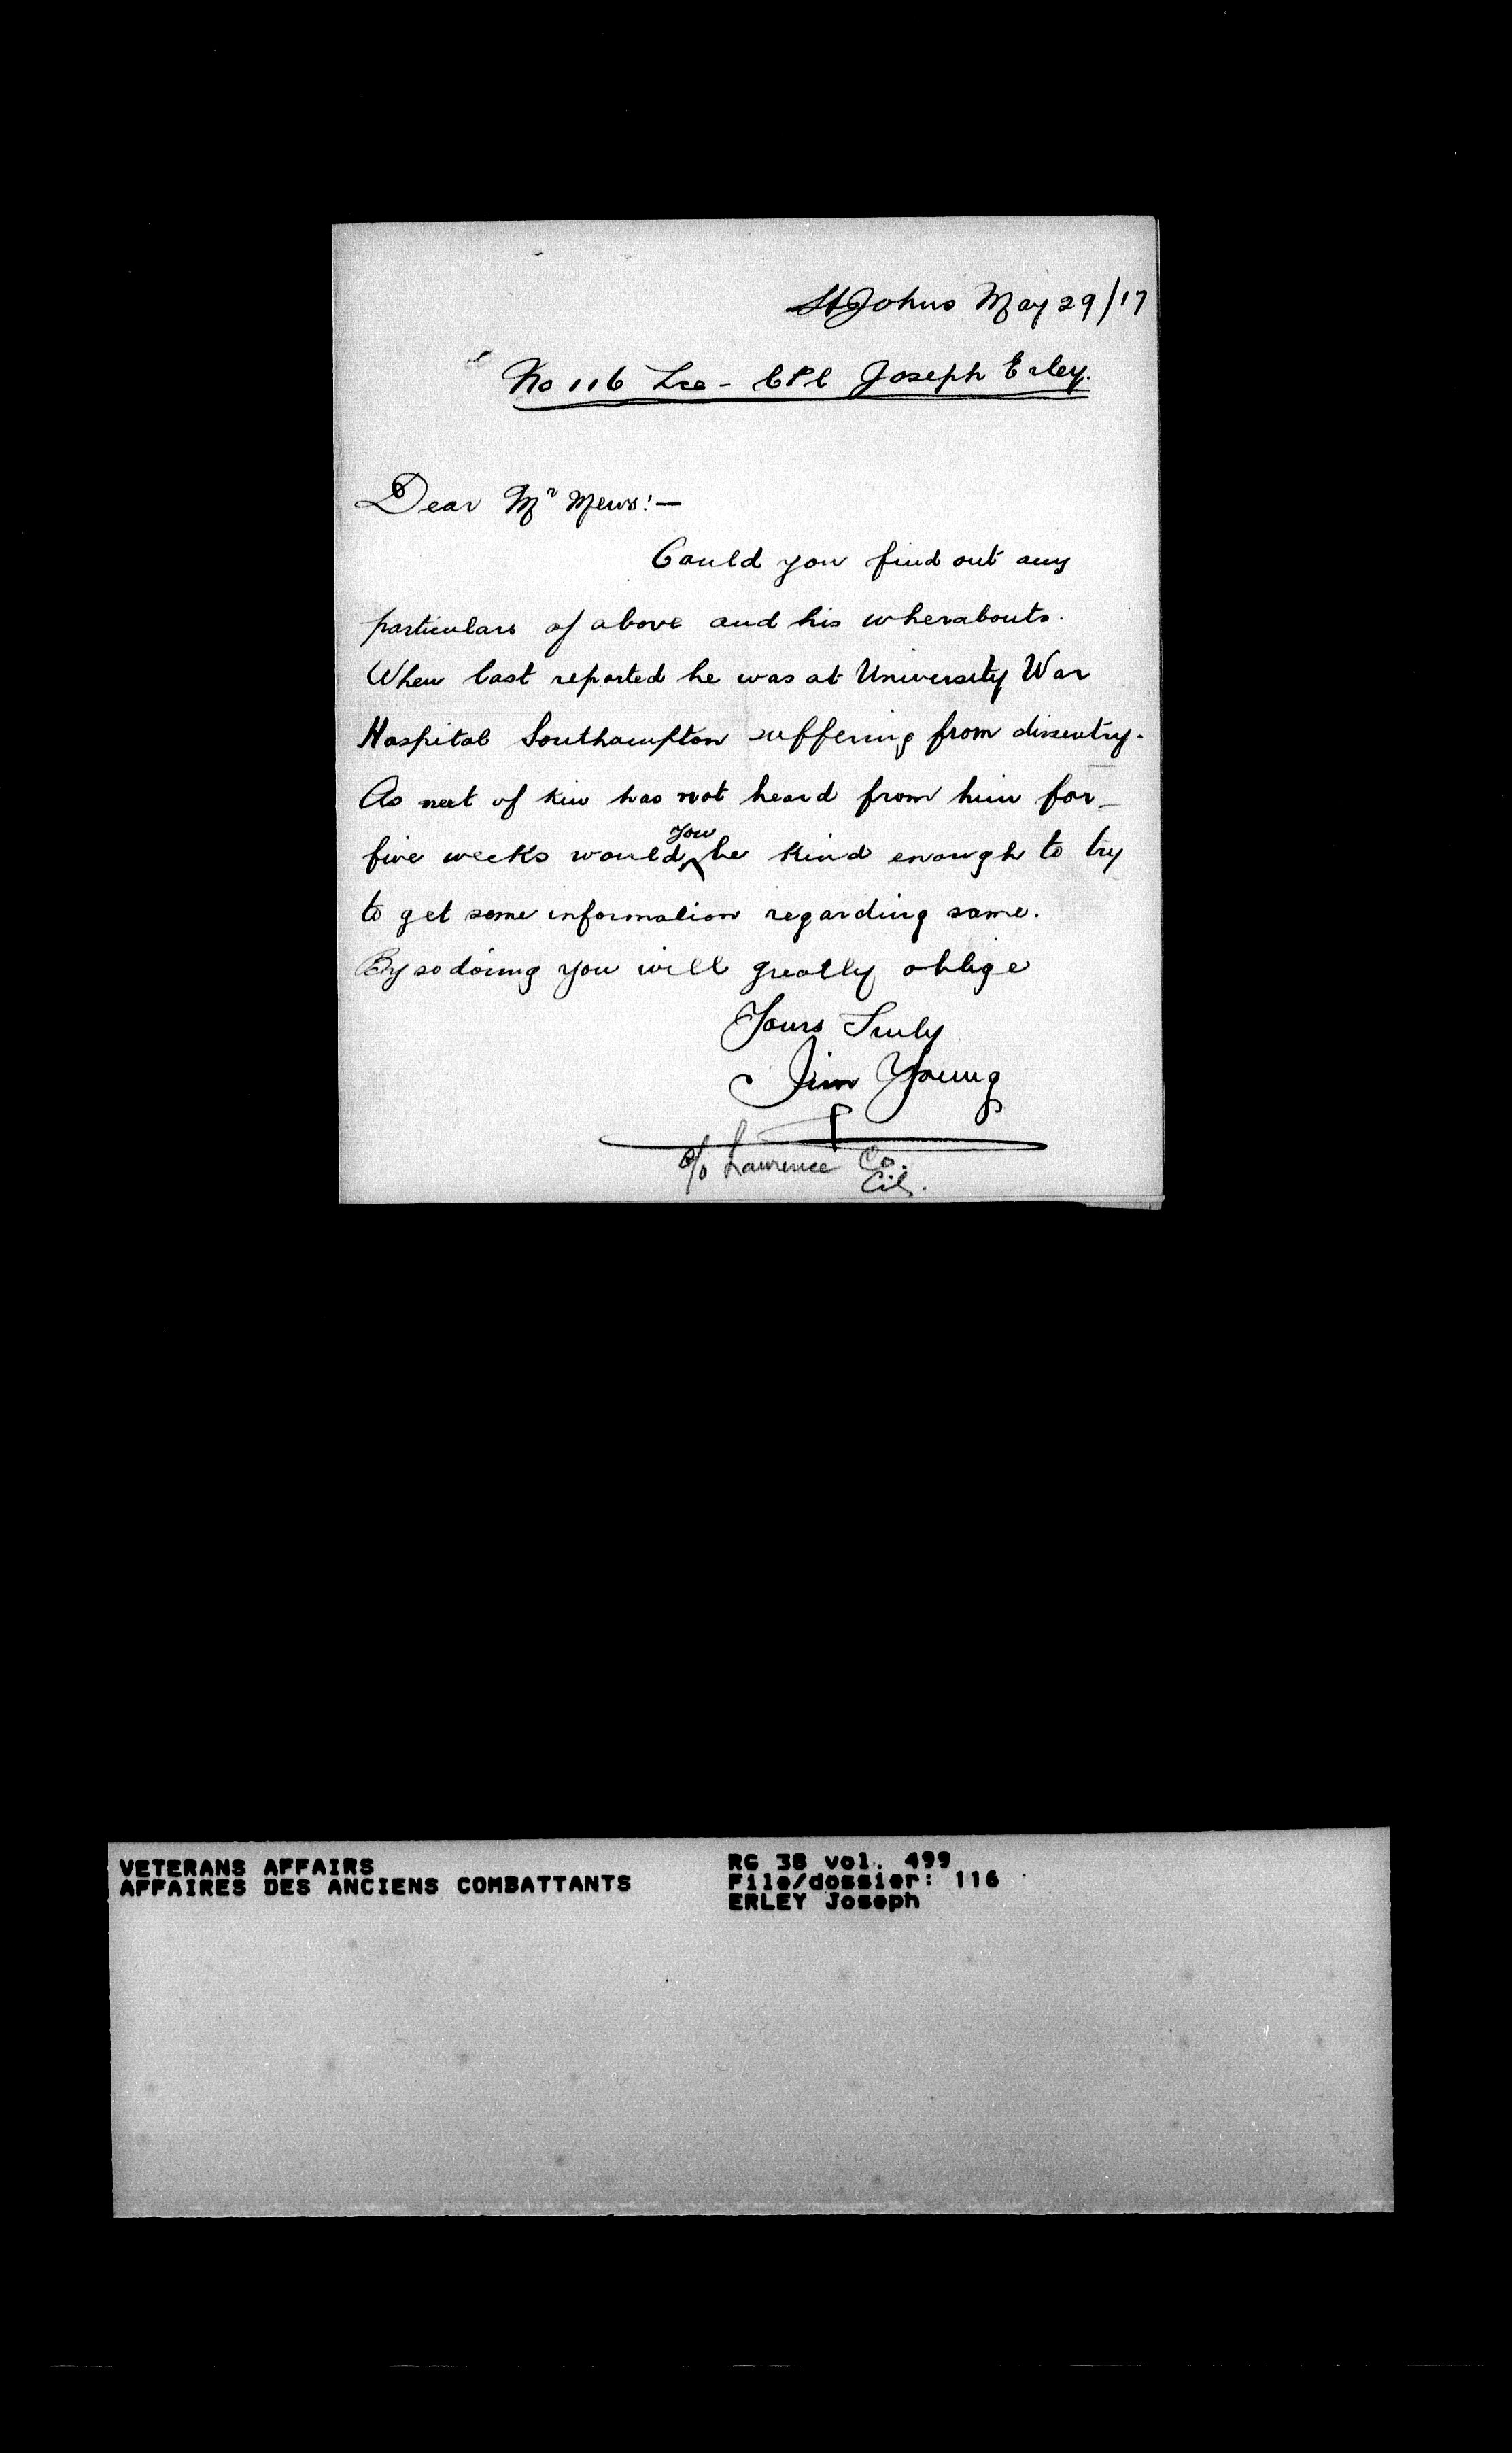 St Johns May 29/17
No 116 Lce - CPl Joseph Erley.
Dear Mr Mews:-
Could you find out any
particulars of above and his wherabouts.
When last reported he was at University War
Hospital Southampton suffering from dissentry.
As next of kin has not heard from him for
five weeks would you be kind enough to try
to get some information regarding same.
By so doing you will greatly oblige
Yours Truly
Jim Young
c/o Lawrence Co.
VETERANS AFFAIRS
AFFAIRES DES ANCIENS COMBATTANTS
RG 38 vol. 499
File/dossier: 116
ERLEY Joseph